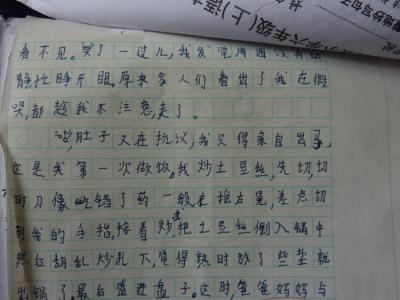 小学六年级(上)语
看不见。哭了一过儿,我发现周围没有
静,忙睁开眼。原来家人们看出了我在假
哭,都趁我不注意走了。
肚子又在抗议,我只得亲自出马,
这是我第一次做饭,我炒土豆丝,先切,切
时刀像吃错了药一般,左拖右晃,差点切
到我的手指,接着炒,把土豆丝倒入锅中
然后胡乱炒乱,下觉得熟时放了些盐就
出锅了。最后盛进盘子。这时,爸爸妈妈与